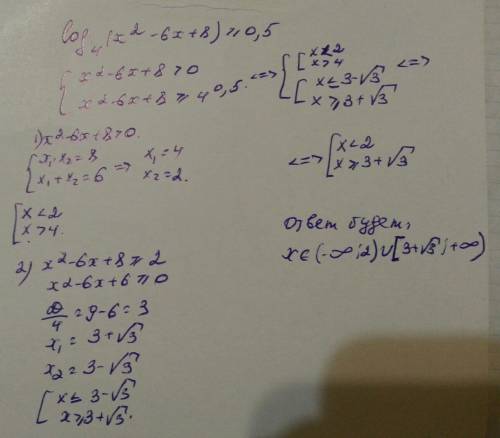 log₄(x² - 6x + 8) ≥ 0,5
{ x² - 6x + 8 > 0
{ x² - 6x + 8 ≥ 4^0,5. <=> { [ x < 2
x > 4
{ [ x ≤ 3 - √3
x ≥ 3 + √3 <=>
<=> [ x < 2
x ≥ 3 + √3
1) x² - 6x + 8 > 0.
{ x₁·x₂ = 8
x₁ + x₂ = 6 => x₁ = 4
x₂ = 2.
[ x < 2
x > 4.
2) x² - 6x + 8 ≥ 2
x² - 6x + 6 ≥ 0
D/4 = 9 - 6 = 3
x₁ = 3 + √3
x₂ = 3 - √3
[ x ≤ 3 - √3
x ≥ 3 + √3.
Ответ будет,
x ∈ (-∞; 2) ∪ [3 + √3; +∞)